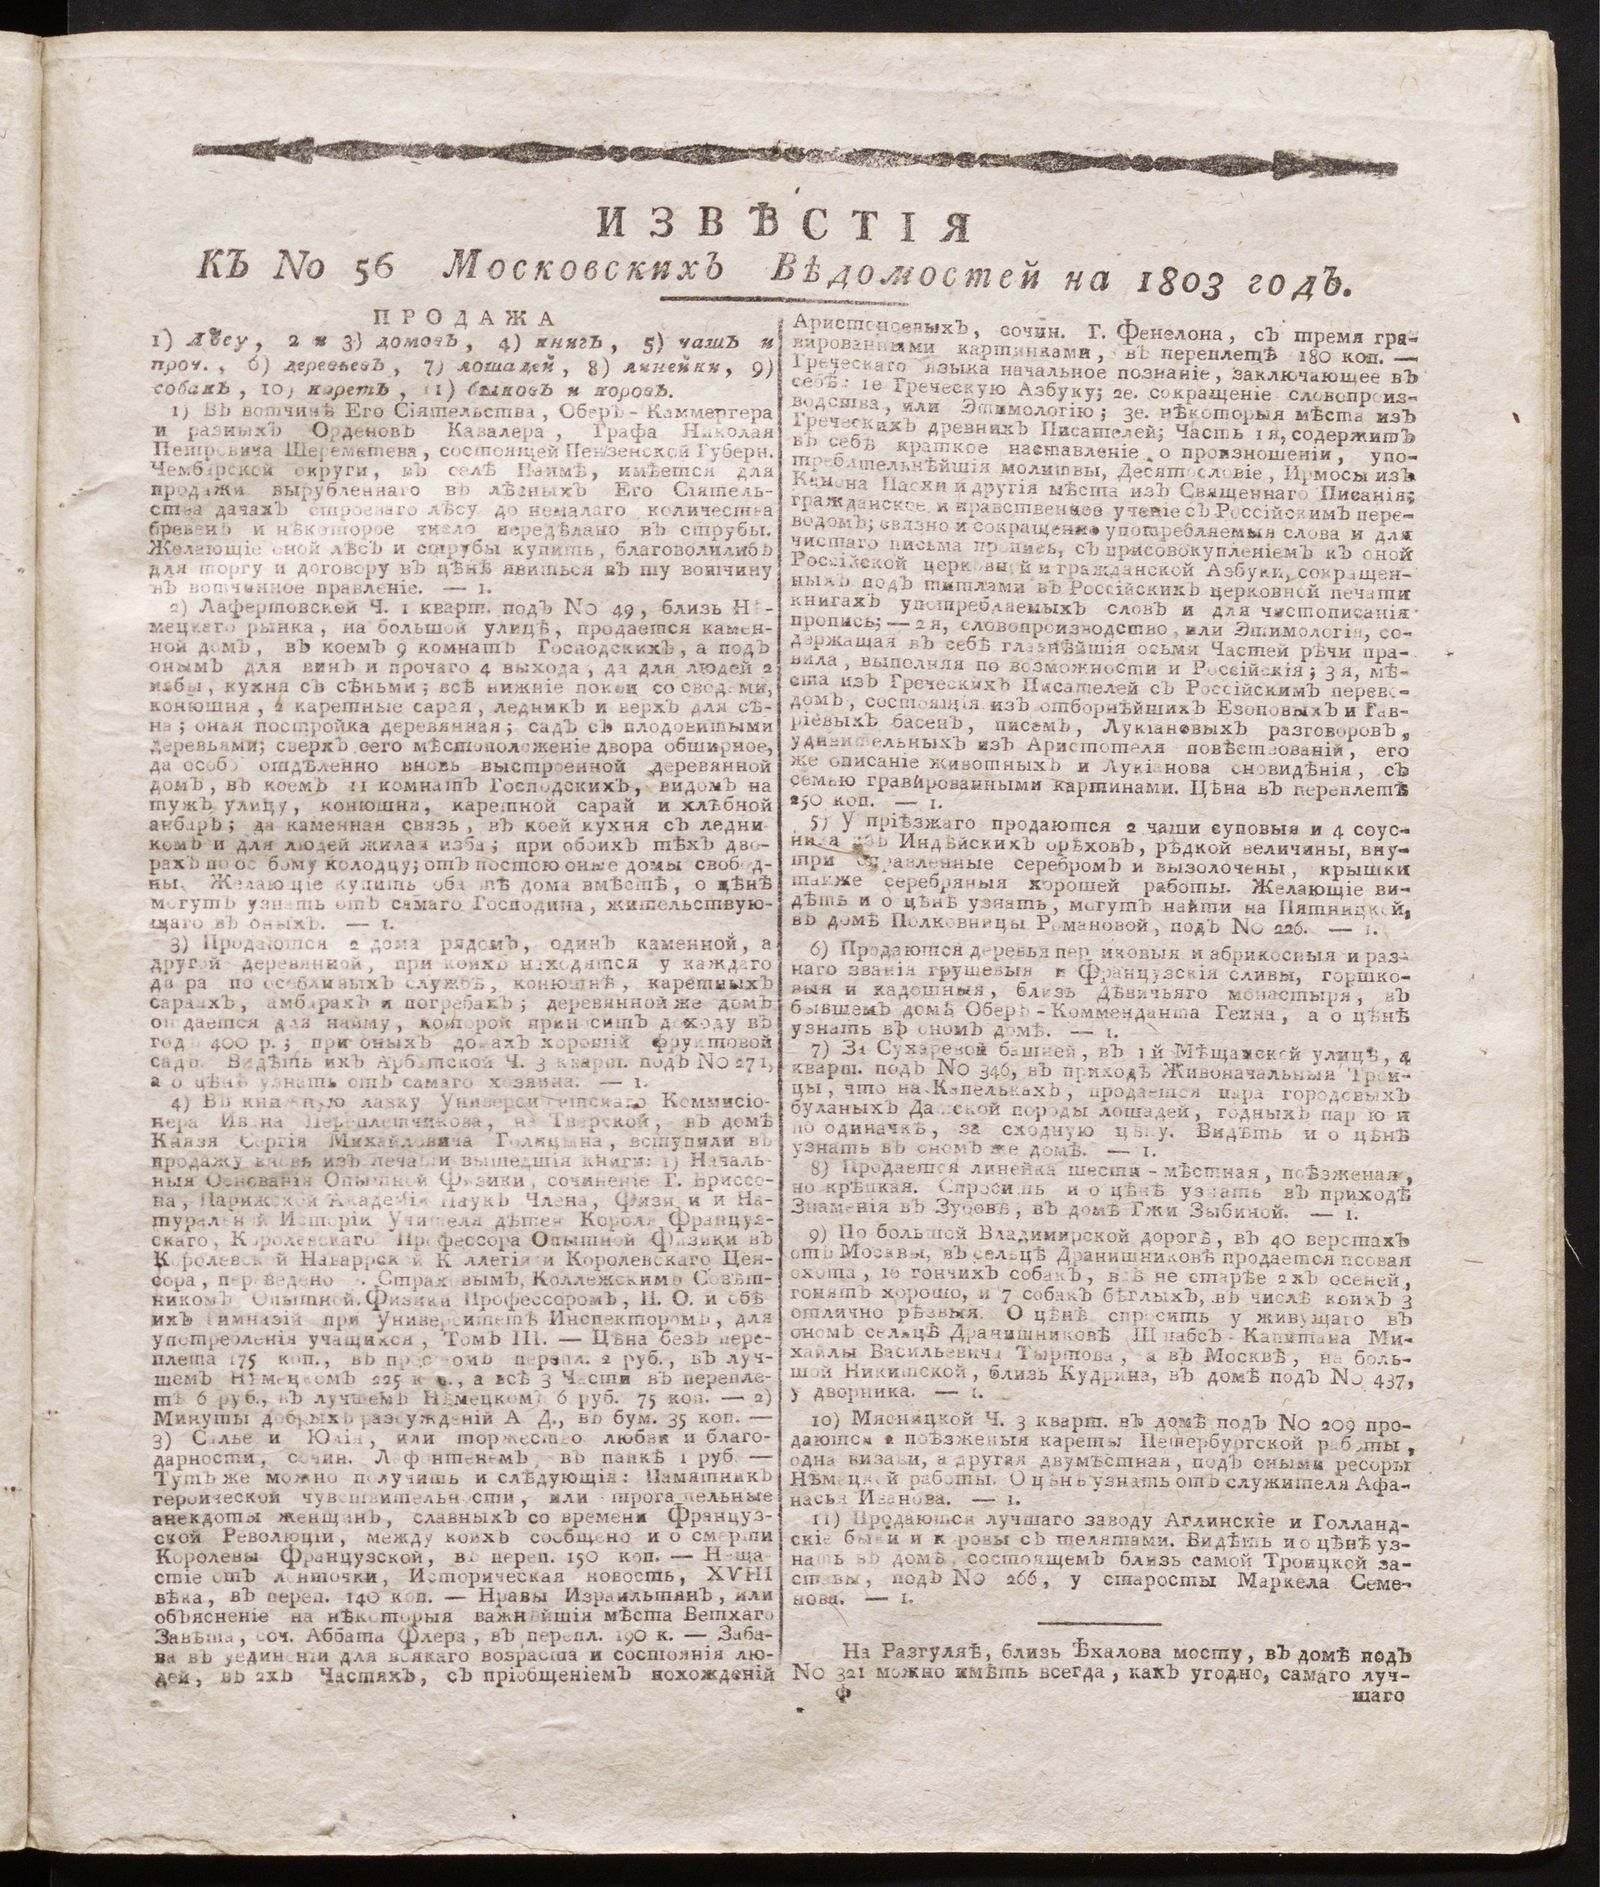 ИЗВѢСТІЯ
КЪ No 56 Московскихъ Вѣдомостей на 1803 годъ.
ПРОДАЖА
1) лѣсу, 2 и 3) домовъ, 4) книгъ, 5) чашъ и
проч., 6) деревьевъ, 7) лошадей, 8) линейки, 9)
собакъ, 10) каретъ, 11) быковъ и коровъ.
1) Въ вотчинѣ Его Сіятельства, Оберъ-Каммергера
и разныхъ Орденовъ Кавалера, Графа Николая
Петровича Шереметева, состоящей Пензенской Губерн.
Чембарской округи, въ селѣ Поимѣ, имѣется для
продажи вырубленнаго въ лѣсныхъ Его Сіятель-
ства дачахъ строеваго лѣсу до немалаго количества
бревенъ и нѣкоторое число передѣлано въ струбы.
Желающіе оной лѣсъ и струбы купить, благоволилибъ
для торгу и договору въ цѣнѣ явиться въ ту вотчину
въ вотчинное правленіе. — 1.
2) Лафертовской Ч. 1 кварт. подъ No 49, близь Нѣ-
мецкаго рынка, на большой улицѣ, продается камен-
ной домъ, въ коемъ 9 комнатъ Господскихъ, а подъ
онымъ для винъ и прочаго 4 выхода, да для людей 2
избы, кухня съ сѣньми; всѣ нижніе покои со сводами,
конюшня, 2 каретные сарая, ледникъ и верхъ для сѣ-
на; оная постройка деревянная; садъ съ плодовитыми
деревьями; сверхъ сего мѣстоположеніе двора обширное,
да особо отдѣленно вновь выстроенной деревянной
домъ, въ коемъ 11 комнатъ Господскихъ, видомъ на
тужъ улицу, конюшня, каретной сарай и хлѣбной
анбаръ; да каменная связь, въ коей кухня съ ледни
комъ и для людей жилая изба; при обоихъ тѣхъ дво-
рахъ по особому колодцу; отъ постою оные домы свобод-
ны. Желающіе купить оба тѣ дома вмѣстѣ, о цѣнѣ
могутъ узнать отъ самаго Господина, жительствую-
щаго въ оныхъ. — 1.
3) Продаются 2 дома рядомъ, одинъ каменной, а
другой деревянной, при коихъ находятся у каждаго
двора по особливыхъ службѣ, конюшнѣ, каретныхъ
сараяхъ, амбарахъ и погребахъ; деревянной же домъ
отдается для найму, которой приноситъ доходу въ
годъ 400 р.; при оныхъ домахъ хорошій фруктовой
садъ. Видѣть ихъ Арбатской Ч. 3 кварт. подъ No 271,
а о цѣнѣ узнать отъ самаго хозяина. — 1.
4) Въ книжную лавку Университетскаго Коммисіо-
нера Ивана Переплетчикова, на Тверской, въ домѣ
Князя Сергія Михайловича Голицына, вступили въ
продажу вновь изъ печати вышедшія книги: 1) Началь-
ныя Основанія Опытной Физики, сочиненіе Г. Бриссо-
на, Парижской Академіи Наукъ Члена, Физики и На-
туральной Исторіи Учителя дѣтей Короля Француз-
скаго, Королевскаго Профессора Опытной Физики въ
Королевской Наваррской Коллегіи и Королевскаго Цен-
сора, переведено Страховымъ, Коллежскимъ Совѣт-
никомъ, Опытной Физики Профессоромъ, П. О. и обѣ
ихъ Гимназій при Университетѣ Инспекторомъ, для
употребленія учащихся, Томъ III. — Цѣна безъ пере-
плета 175 коп., въ простомъ перепл. 2 руб., въ луч-
шемъ Нѣмецкомъ 225 коп., а всѣ 3 Части въ перепле-
тѣ 6 руб., въ лучшемъ Нѣмецкомъ 6 руб. 75 коп. — 2)
Минуты добрыхъ разсужденій А. Д., въ бум. 35 коп. —
3) Салье и Юлія, или торжество любви и благо-
дарности, сочин. Лафонтенемъ, въ папкѣ 1 руб. —
Тутъ же можно получить и слѣдующія: Памятникъ
героической чувствительности, или трогательные
анекдоты женщинъ, славныхъ со времени Француз-
ской Революціи, между коихъ сообщено и о смерти
Королевы Французской, въ переп. 150 коп. — Неща-
стіе отъ ленточки, Историческая новость, XVIII
вѣка, въ переп. 140 коп. — Нравы Израильтянъ, или
объясненіе на нѣкоторыя важнѣйшія мѣста Ветхаго
Завѣта, соч. Аббата Флера, въ перепл. 190 к. — Заба-
ва въ уединеніи для всякаго возраста и состоянія лю-
дей, въ 2хъ Частяхъ, съ пріобщеніемъ похожденій
Аристоноевыхъ, сочин. Г. Фенелона, съ тремя гра-
вированными картинками, въ переплетѣ 180 коп. —
Греческаго языка начальное познаніе, заключающее въ
себѣ: 1е Греческую Азбуку; 2е. сокращеніе словопроиз-
водства, или Этимологію; 3е. нѣкоторыя мѣста изъ
Греческихъ древнихъ Писателей; Часть 1я, содержитъ
въ себѣ краткое наставленіе о произношеніи, упо-
требительнѣйшія молитвы, Десятословіе, Ирмосы изъ
Канона Пасхи и другія мѣста изъ Священнаго Писанія;
гражданское и нравственное ученіе съ Россійскимъ пере-
водомъ; связно и сокращенно употребляемыя слова и для
чистаго письма пропись, съ присовокупленіемъ къ оной
Россійской церковной и гражданской Азбуки, сокращен-
ныхъ подъ титлами въ Россійскихъ церковной печати
книгахъ употребляемыхъ словъ и для чистописанія
пропись; — 2я, словопроизводство, или Этимологія, со-
держащая въ себѣ главнѣйшія осьми Частей рѣчи пра-
вила, выполняя по возможности и Россійскія; 3я, мѣ-
ста изъ Греческихъ Писателей съ Россійскимъ перево-
домъ, состоящія изъ отборнѣйшихъ Езоповыхъ и Гав-
ріевыхъ басенъ, писемъ, Лукіановыхъ разговоровъ,
удивительныхъ изъ Аристотеля повѣствованій, его
же описаніе животныхъ и Лукіанова сновидѣнія, съ
семью гравированными картинами. Цѣна въ переплетѣ
250 коп. — 1.
5) У пріѣзжаго продаются 2 чаши суповыя и 4 соус-
ника изъ Индѣйскихъ орѣховъ, рѣдкой величины, вну-
три оправленные серебромъ и вызолочены, крышки
также серебряныя хорошей работы. Желающіе ви-
дѣть и о цѣнѣ узнать, могутъ найти на Пятницкой,
въ домѣ Полковницы Романовой, подъ No 226. — 1.
6) Продаются деревья персиковыя и абрикосныя и раз-
наго званія грушевыя и Французскія сливы, горшко-
выя и кадошныя, близь Дѣвичьяго монастыря, въ
бывшемъ домѣ Оберъ-Комменданта Геина, а о цѣнѣ
узнать въ ономъ домѣ. — 1.
7) За Сухаревой башней, въ 1й Мѣщанской улицѣ, 4
кварт. подъ No 346, въ приходѣ Живоначальныя Трои-
цы, что на Капелькахъ, продается пара городовыхъ
буланыхъ Датской породы лошадей, годныхъ парою и
по одиначкѣ, за сходную цѣну. Видѣть и о цѣнѣ
узнать въ ономъ же домѣ. — 1.
8) Продается линейка шести-мѣстная, поѣзженая,
но крѣпкая. Спросить и о цѣнѣ узнать въ приходѣ
Знаменія въ Зубовѣ, въ домѣ Гжи Зыбиной. — 1.
9) По большой Владимирской дорогѣ, въ 40 верстахъ
отъ Москвы, въ сельцѣ Дранишниковѣ продается псовая
охота, 10 гончихъ собакъ, всѣ не старѣе 2хъ осеней,
гонятъ хорошо, и 7 собакъ бѣглыхъ, въ числѣ коихъ 3
отлично рѣзвыя. О цѣнѣ спросить у живущаго въ
ономъ сельцѣ Дранишниковѣ Штабсъ-Капитана Ми-
хайлы Васильевича Тыртова, а въ Москвѣ, на боль-
шой Никитской, близь Кудрина, въ домѣ подъ No 437,
у дворника. — 1.
10) Мясницкой Ч. 3 кварт. въ домѣ подъ No 209 про-
даются 2 поѣзженыя кареты Петербургской работы,
одна визави, а другая двумѣстная, подъ оными ресоры
Нѣмецкой работы. О цѣнѣ узнать отъ служителя Афа-
насья Иванова. — 1.
11) Продаются лучшаго заводу Аглинскіе и Голланд-
скіе быки и коровы съ телятами. Видѣть и о цѣнѣ уз-
нать въ домѣ, состоящемъ близь самой Троицкой за-
ставы, подъ No 266, у старосты Маркела Семе-
нова. — 1.
На Разгуляѣ, близь Ѣхалова мосту, въ домѣ подъ
No 321 можно имѣть всегда, какъ угодно, самаго луч-
Ф шаго